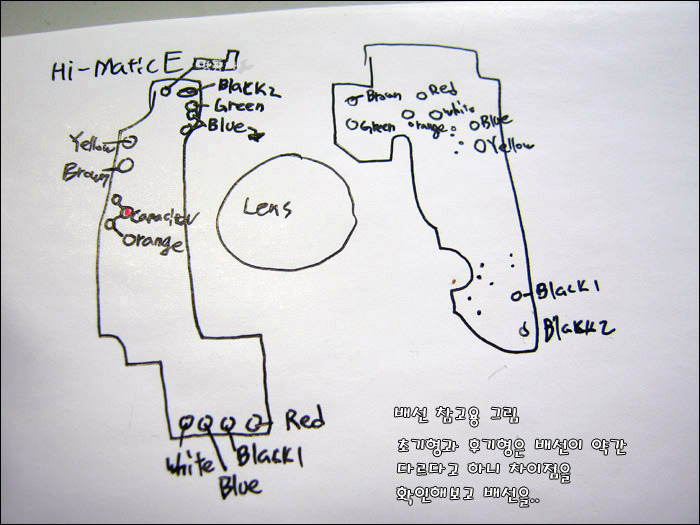 Hi-Matic E
Black2
Green
Blue2
Yellow
Brown
Capacitor
Orange
Lens
Red
White
Blue
Black1
Brown
Red
White
Green
Orange
Blue
Yellow
Black1
Black2
배선 참고용 그림
초기형과 후기형은 배선이 약간
다르다고 하니 차이점을
확인해보고 배선을..